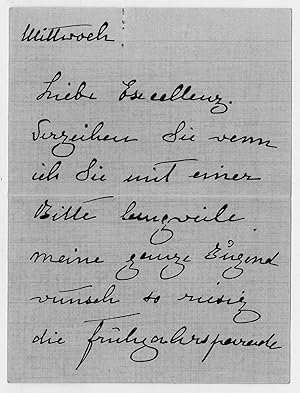 Mittwoch
Liebe Excellenz.
Verzeihen Sie wenn
ich Sie mit einer
Bitte langweile.
meine ganze Jugend
wünsch so riesig
die Frühjahrsparade